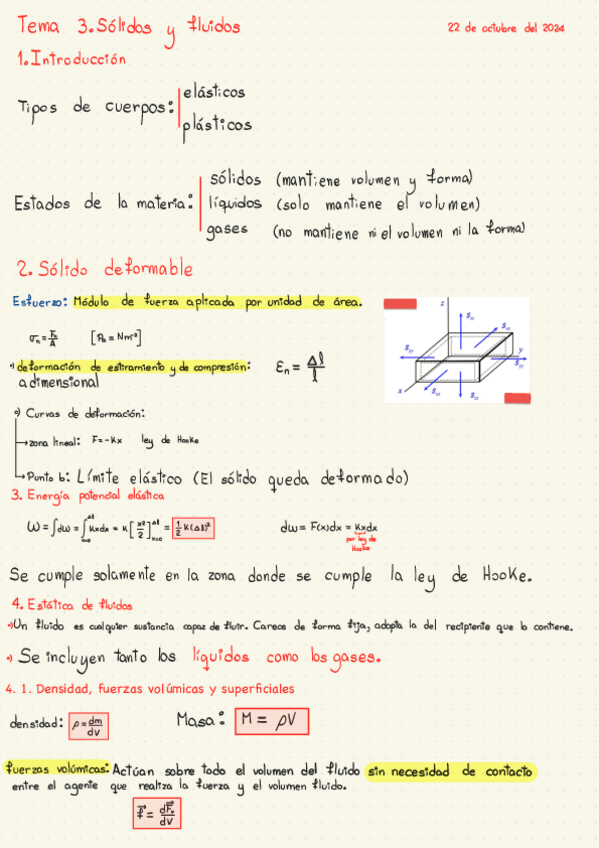 Tema 3. Sólidos y fluidos
22 de octubre del 2024
1. Introducción
Tipos de cuerpos:
elásticos
plásticos
Estados de la materia:
sólidos (mantiene volumen y forma)
líquidos (solo mantiene el volumen)
gases (no mantiene ni el volumen ni la forma)
2. Sólido deformable
Esfuerzo: Módulo de fuerza aplicada por unidad de área.
σn = Fn/A [Pa = Nm⁻²]
deformación de estiramiento y de compresión: εn = Δl/l
adimensional
Curvas de deformación:
→ zona lineal: F = -Kx ley de Hooke
→ Punto b: Límite elástico (El sólido queda deformado)
z
y
x
3. Energía potencial elástica
W = ∫dw = ∫Kxdx = K[x²/2] = 1/2 K(Δl)²
dw = F(x)dx = Kxdx
por ley de
Hooke
Se cumple solamente en la zona donde se cumple la ley de Hooke.
4. Estática de fluidos
Un fluido es cualquier sustancia capaz de fluir. Carece de forma fija, adopta la del recipiente que lo contiene.
Se incluyen tanto los líquidos como los gases.
4. 1. Densidad, fuerzas volúmicas y superficiales
densidad: ρ = dm/dV Masa: M = ρV
fuerzas volúmicas: Actúan sobre todo el volumen del fluido sin necesidad de contacto
entre el agente que realiza la fuerza y el volumen fluido.
f = dFv/dV